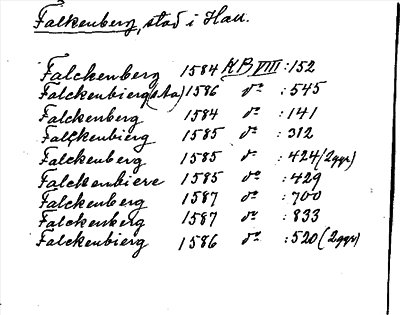 Falkenberg, stad i Hall.
Falckenberg 1584 KB VIII :152
Falckenbierg (sta) 1586 do :545
Falckenberg 1584 do :141
Falckenbierg 1585 do :312
Falckenberg 1585 do :424 (2ggr)
Falckenbiere 1585 do :429
Falckenberg 1587 do :700
Falckenberg 1587 do :833
Falckenbierg 1586 do :520 (2ggr)